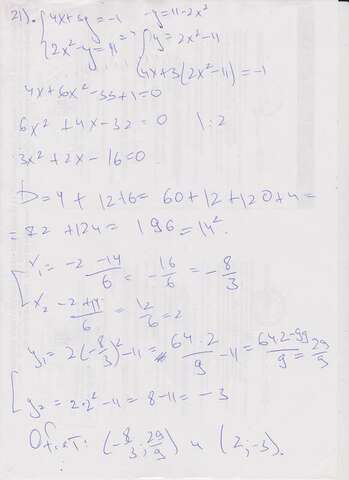 21). { 4x+3y=-1 -y=11-2x²
{ 2x²-y=11 => { y=2x²-11
4x+3(2x²-11)=-1
4x+6x²-33+1=0
6x²+4x-32=0 |:2
3x²+2x-16=0
D=4+12·16=60+12+120+4=
=72+124=196=14².
[ x₁=-2-14/6=-16/6=-8/3
x₂ -2+14/6=12/6=2
[ y₁=2(-8/3)²-11=64·2/9-11=64·2-99/9=29/9
y₂=2·2²-11=8-11=-3
Ответ: (-8/3;29/9) и (2;-3).